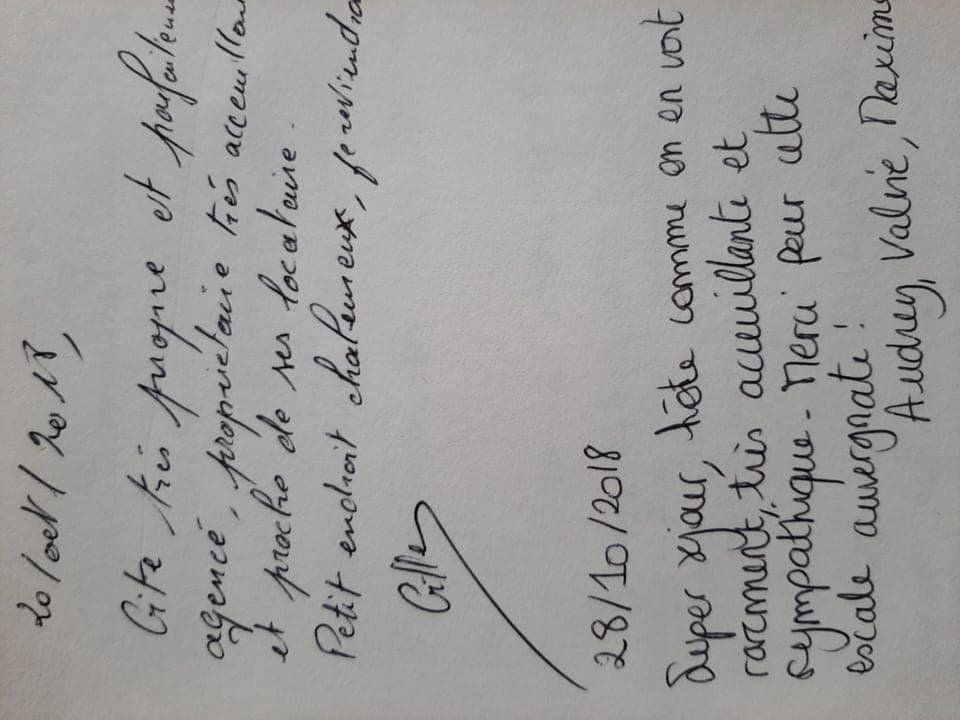 20/oct/2018,
Gite très propre et parfaitem
agencé, propriétaire très acceuillan
et proche de ses locataire.
Petit endroit chaleureux, je reviendra
Gilles
28/10/2018
Super séjour, hôte comme on en voit
rarement, très accueillante et
sympathique. Merci pour cette
escale auvergnate !
Audrey, Valérie, Maxime